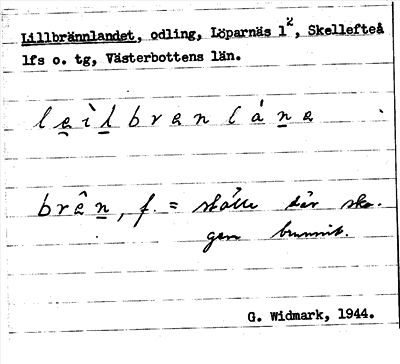 Lillbrännlandet, odling, Löparnäs 1², Skellefteå
lfs o. tg, Västerbottens län.
brên, f. = ställe där sko-
gen brunnit.
G. Widmark, 1944.